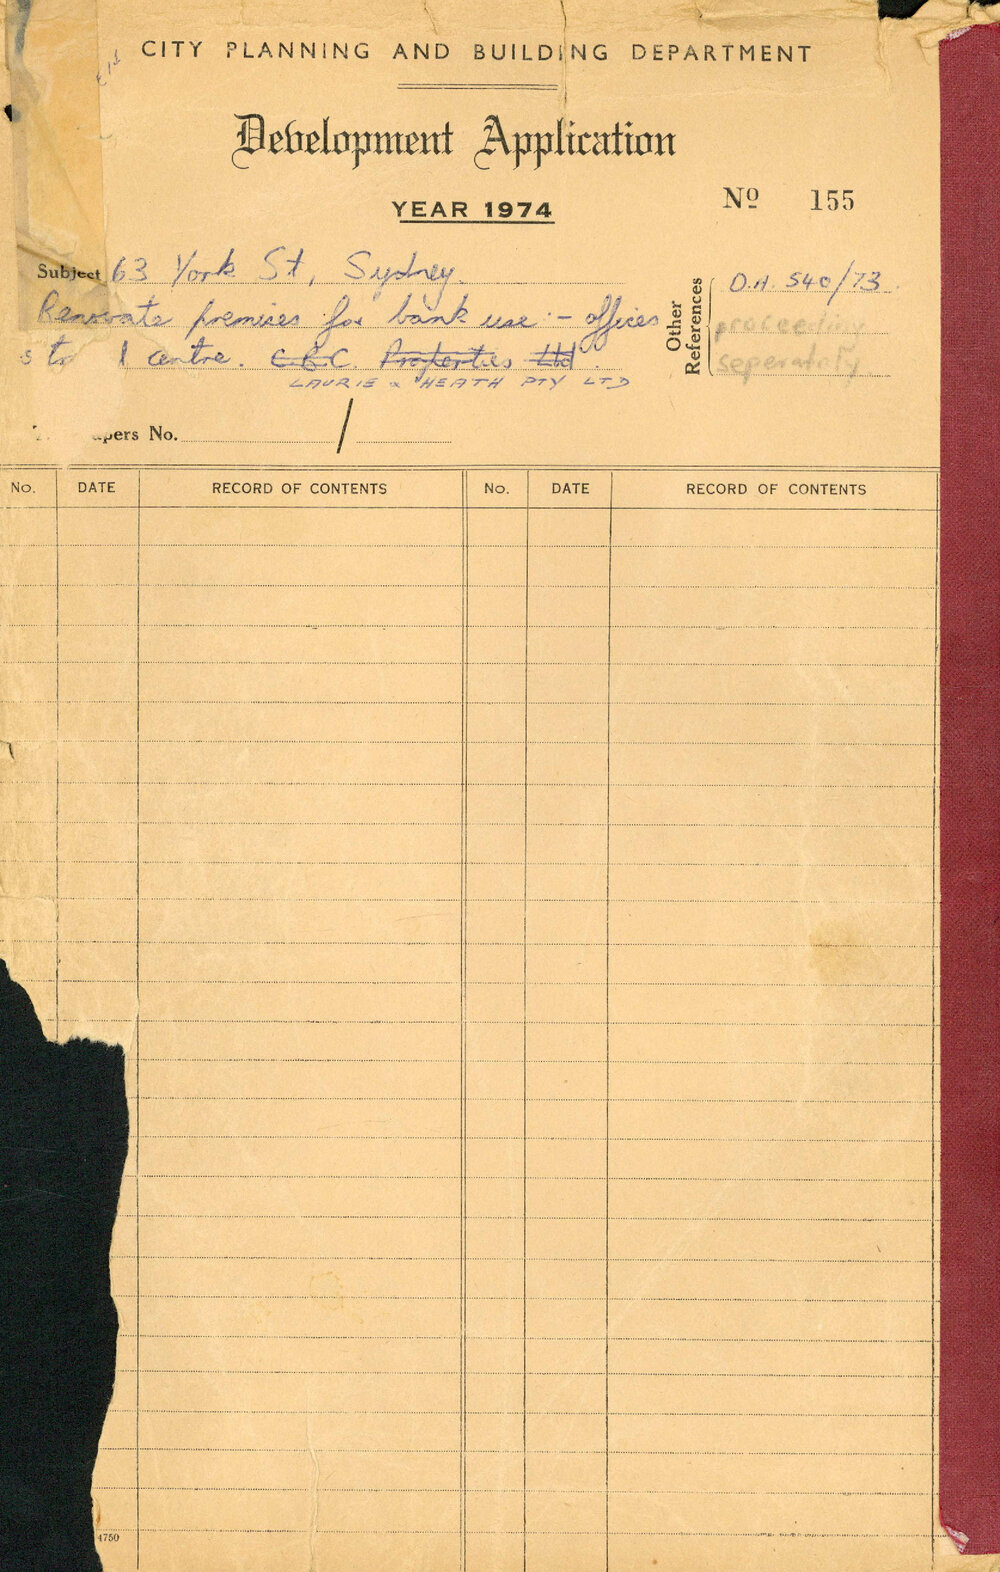 CITY PLANNING AND BUILDING DEPARTMENT
Development Application
YEAR 1974
Nº 155
Subject 63 York St, Sydney.
Renovate premises for bank use - offices
& centre. C.B.C. Properties Ltd.
LAURIE & HEATH PTY LTD
Other References
D.A. 540/73.
proceeding
seperately
pers No. /
No. DATE RECORD OF CONTENTS No. DATE RECORD OF CONTENTS
4750